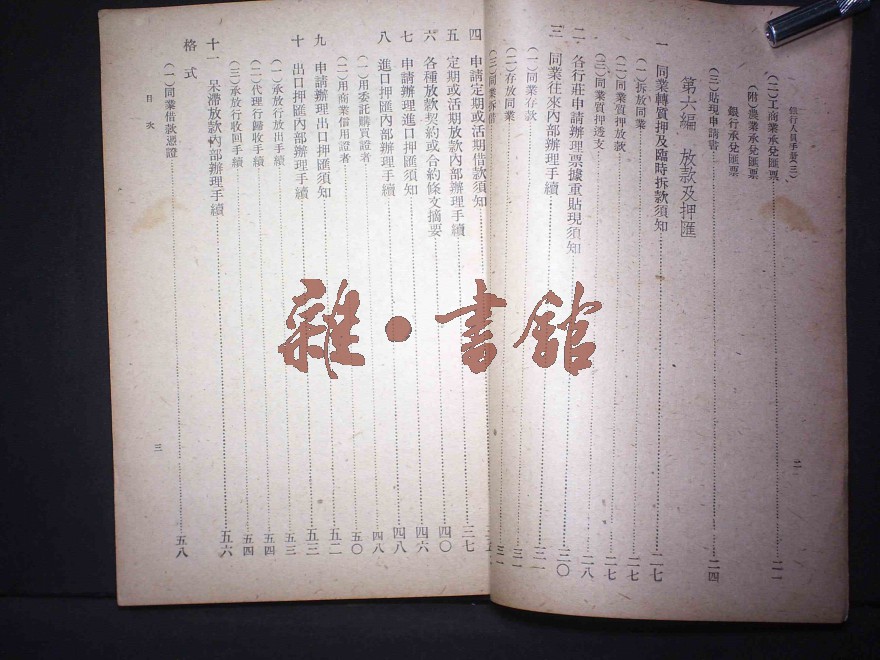 銀行人員手册(三)
(二)工商業承兌匯票……二一
(附)農業承兌匯票
銀行承兌匯票
(三)貼現申請書……二四
第六編 放款及押匯
一 同業轉質押及臨時拆款須知……二七
(一)拆放同業……二七
(二)同業質押放款……二七
(三)同業質押透支……二八
二 各行莊申請辦理票據重貼現須知……三〇
三 同業往來內部辦理手續……三一
(一)同業存款……三一
(二)存放同業……三一
(三)同業拆借
四 申請定期或活期借款須知……三七
五 定期或活期放款內部辦理手續……四〇
六 各種放款契約或合約條文摘要……四六
七 申請辦理進口押匯須知……四八
八 進口押匯內部辦理手續……四八
(一)用委託購買證者……五〇
(二)用商業信用證者……五二
九 申請辦理出口押匯須知……五三
十 出口押匯內部辦理手續……五三
(一)承放行放出手續……五四
(二)代理行歸收手續……五四
(三)承放行收回手續
十一 呆滯放款內部辦理手續……五六
格式
(一)同業借款憑證……五八
目次
三
二
雜·書館